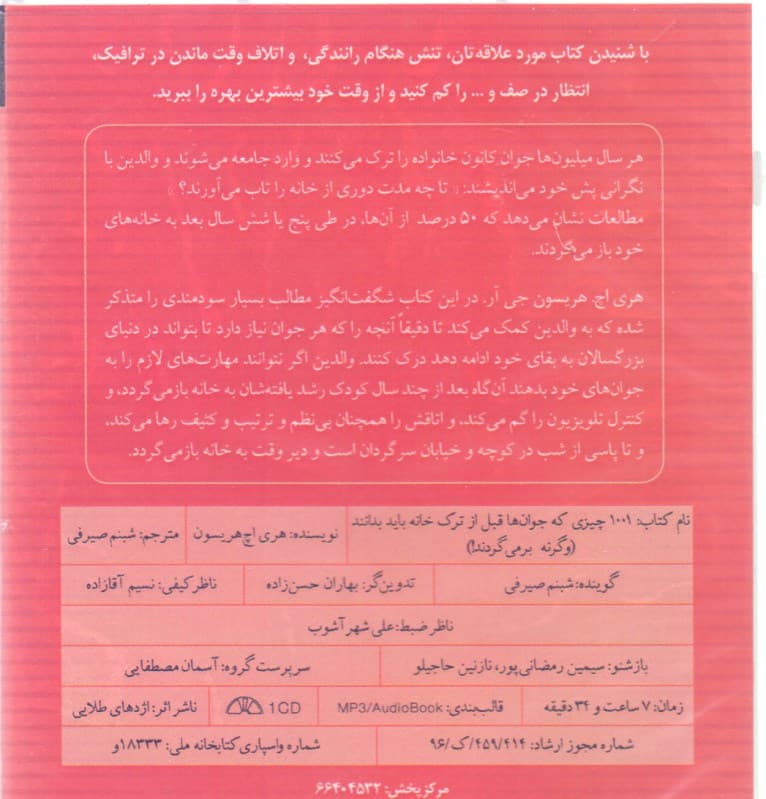 با شنیدن کتاب مورد علاقه‌تان، تنش هنگام رانندگی، و اتلاف وقت ماندن در ترافیک،
انتظار در صف و ... را کم کنید و از وقت خود بیشترین بهره را ببرید.
هر سال میلیون‌ها جوان کانون خانواده را ترک می‌کنند و وارد جامعه می‌شوند و والدین با
نگرانی پش خود می‌اندیشند: « تا چه مدت دوری از خانه را تاب می‌آورند؟ »
مطالعات نشان می‌دهد که ۵۰ درصد از آن‌ها، در طی پنج یا شش سال بعد به خانه‌های
خود باز می‌گردند.
هری اچ. هریسون جی آر. در این کتاب شگفت‌انگیز مطالب بسیار سودمندی را متذکر
شده که به والدین کمک می‌کند تا دقیقاً آنچه را که هر جوان نیاز دارد تا بتواند در دنیای
بزرگسالان به بقای خود ادامه دهد درک کنند. والدین اگر نتوانند مهارت‌های لازم را به
جوان‌های خود بدهند آن‌گاه بعد از چند سال کودک رشد یافته‌شان به خانه بازمی‌گردد، و
کنترل تلویزیون را گم می‌کند، و اتاقش را همچنان بی‌نظم و ترتیب و کثیف رها می‌کند،
و تا پاسی از شب در کوچه و خیابان سرگردان است و دیر وقت به خانه بازمی‌گردد.
نام کتاب: ۱۰۰۱ چیزی که جوان‌ها قبل از ترک خانه باید بدانند
(وگرنه برمی‌گردند!)
نویسنده: هری اچ‌هریسون
مترجم: شبنم صیرفی
گوینده: شبنم صیرفی
تدوین‌گر: بهاران حسن‌زاده
ناظر کیفی: نسیم آقازاده
ناظر ضبط: علی شهرآشوب
بازشنو: سیمین رمضانی‌پور، نازنین حاجیلو
سرپرست گروه: آسمان مصطفایی
زمان: ۷ ساعت و ۳۴ دقیقه
قالب‌بندی: MP3/AudioBook
1CD
ناشر اثر: اژدهای طلایی
شماره مجوز ارشاد: ۴۵۹/۴۱۴/ک/۹۶
شماره واسپاری کتابخانه ملی: ۱۸۳۳۳و
مرکز پخش: ۶۶۴۰۴۵۳۲